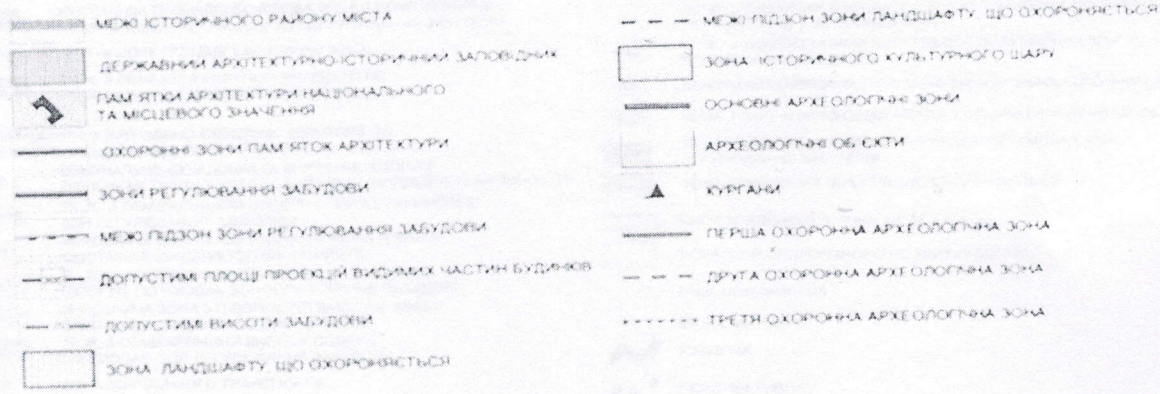 МЕЖІ ІСТОРИЧНОГО РАЙОНУ МІСТА
ДЕРЖАВНИЙ АРХІТЕКТУРНО-ІСТОРИЧНИЙ ЗАПОВІДНИК
ПАМ ЯТКИ АРХІТЕКТУРИ НАЦІОНАЛЬНОГО
ТА МІСЦЕВОГО ЗНАЧЕННЯ
ОХОРОННІ ЗОНИ ПАМ ЯТОК АРХІТЕКТУРИ
ЗОНИ РЕГУЛЮВАННЯ ЗАБУДОВИ
МЕЖІ ПІДЗОН ЗОНИ РЕГУЛЮВАННЯ ЗАБУДОВИ
ДОПУСТИМІ ПЛОЩІ ПРОЕКЦІЙ ВИДИМИХ ЧАСТИН БУДИНКІВ
ДОПУСТИМІ ВИСОТИ ЗАБУДОВИ
ЗОНА ЛАНДШАФТУ, ЩО ОХОРОНЯЄТЬСЯ
МЕЖІ ПІДЗОН ЗОНИ ЛАНДШАФТУ, ЩО ОХОРОНЯЄТЬСЯ
ЗОНА ІСТОРИЧНОГО КУЛЬТУРНОГО ШАРУ
ОСНОВНІ АРХЕОЛОГІЧНІ ЗОНИ
АРХЕОЛОГІЧНІ ОБ ЄКТИ
КУРГАНИ
ПЕРША ОХОРОННА АРХЕОЛОГІЧНА ЗОНА
ДРУГА ОХОРОННА АРХЕОЛОГІЧНА ЗОНА
ТРЕТЯ ОХОРОННА АРХЕОЛОГІЧНА ЗОНА